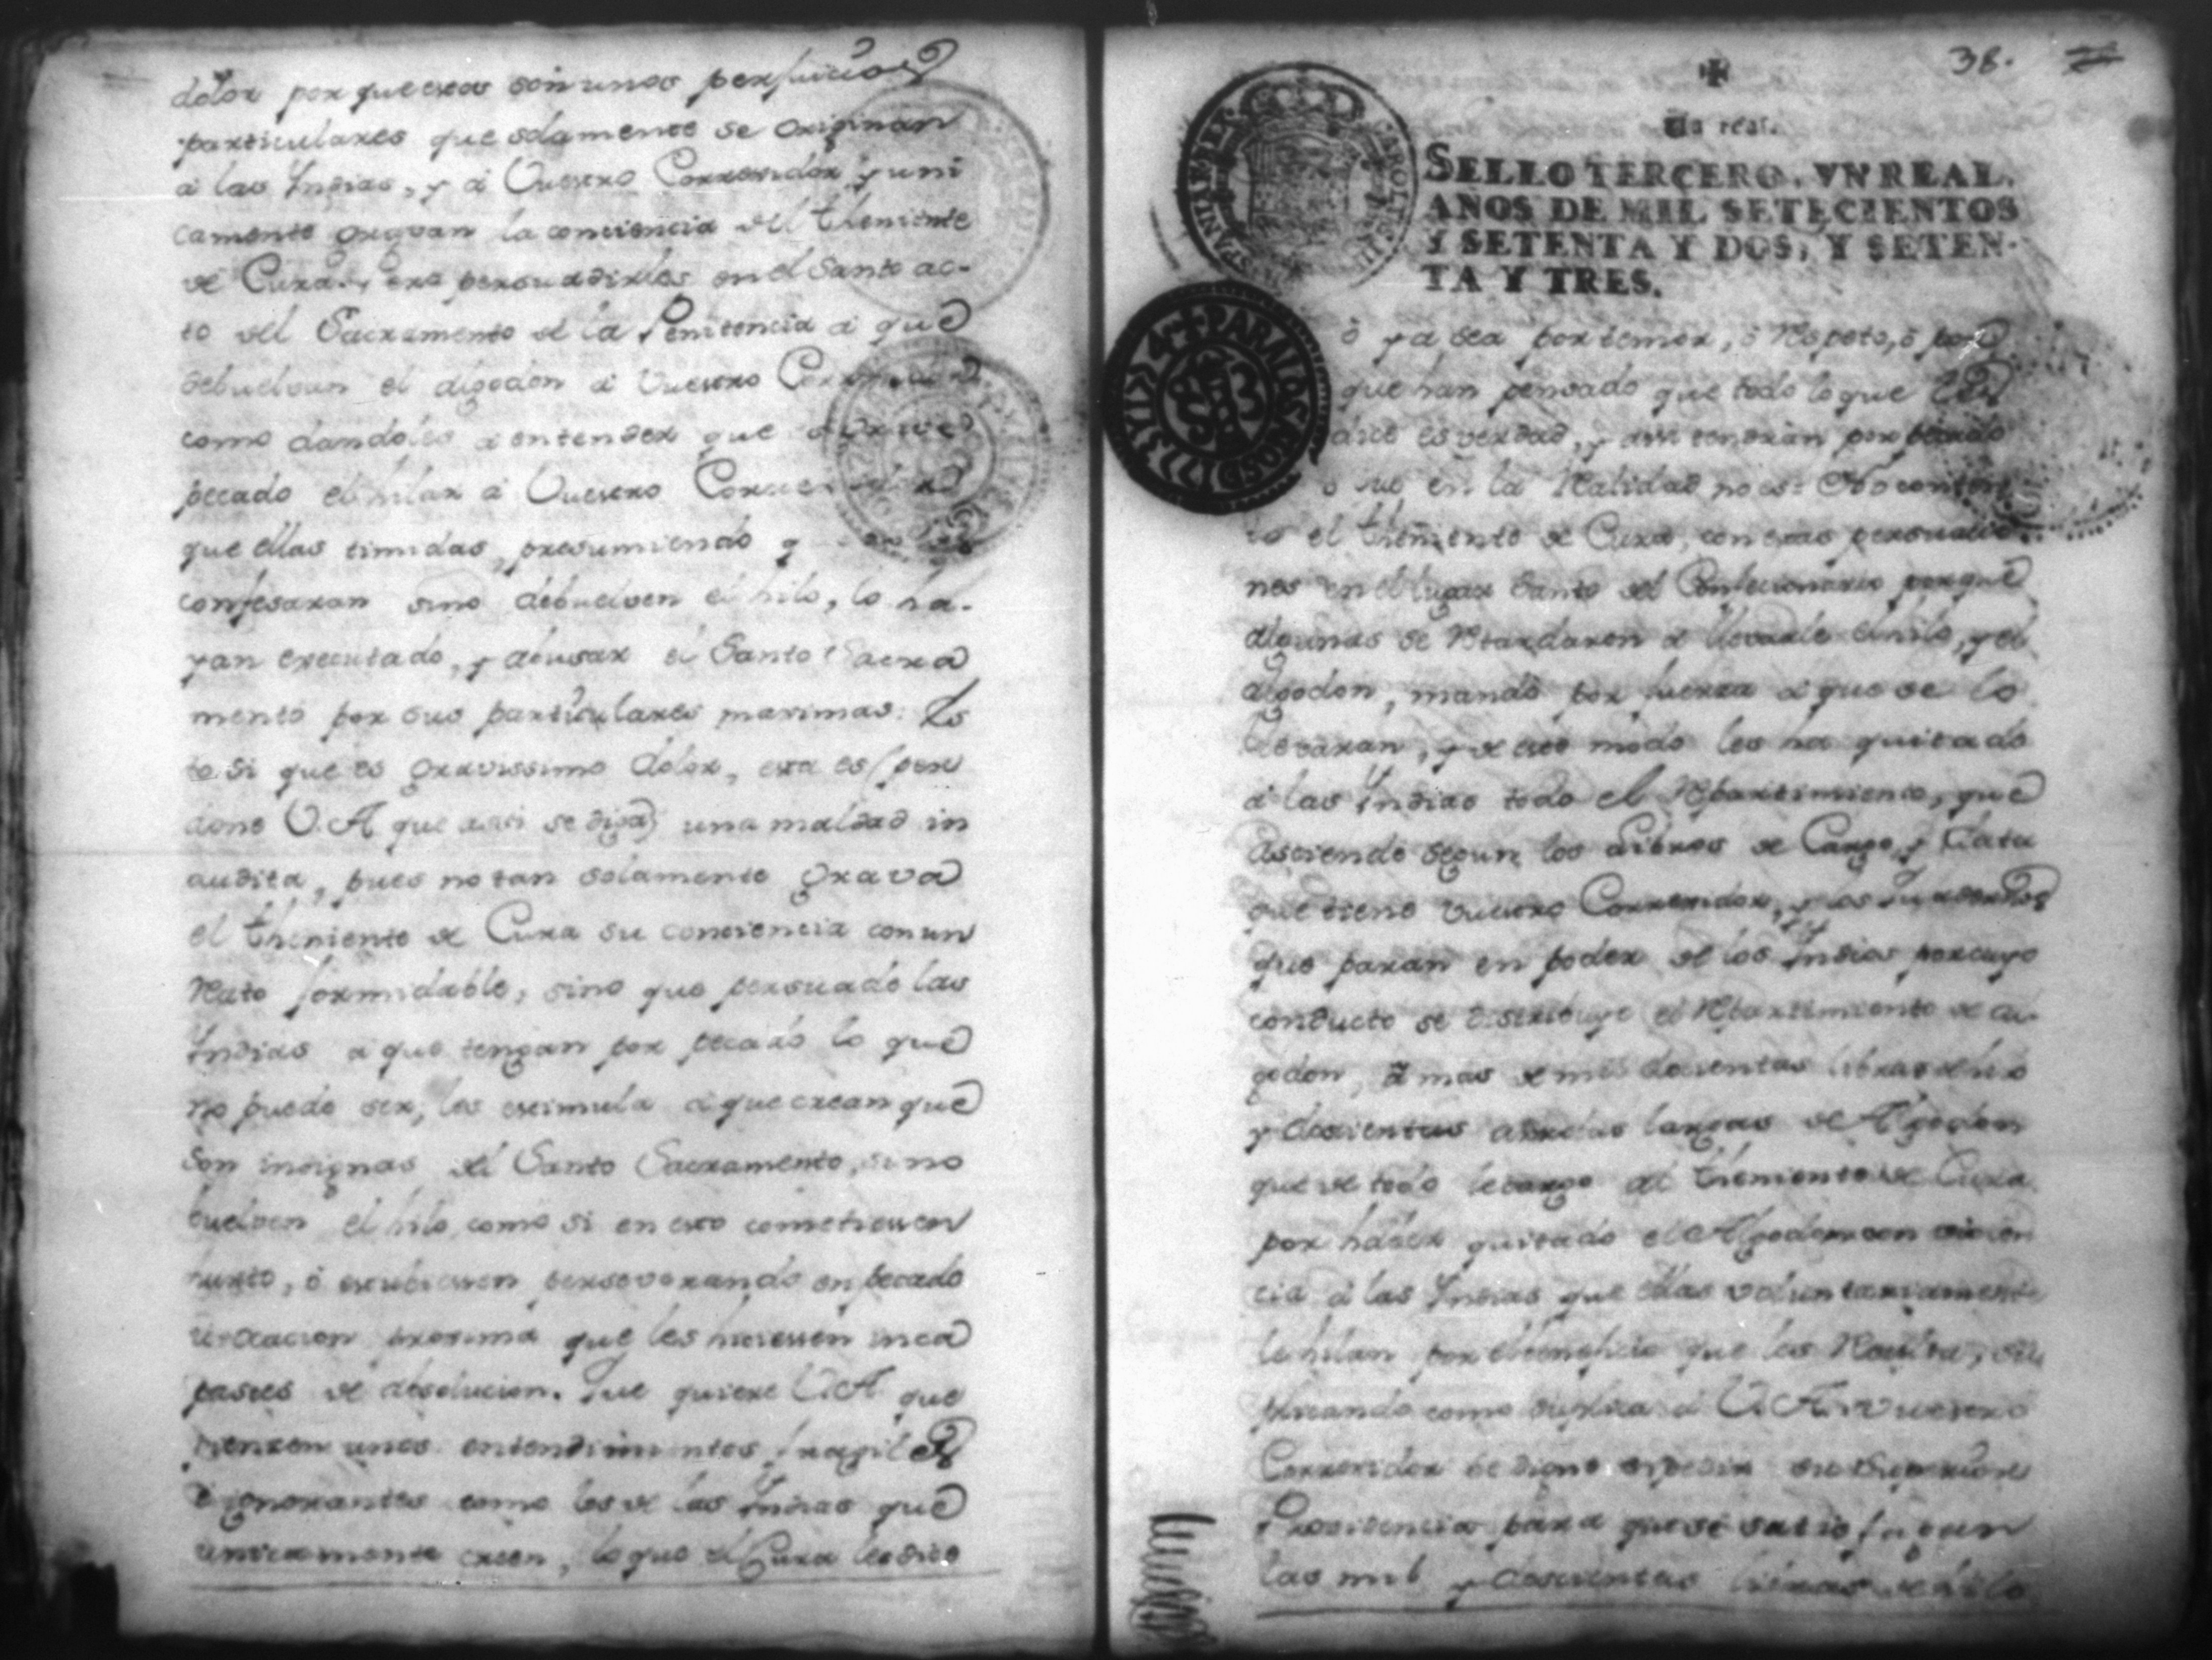 dolor porque esos son unos perjuicios
particulares que solamente se originan
a las Indias, y a Vuestro Corregidor y uni
camente gravan la conciencia del theniente
de Cura, pero persuadirles en el Santo ac-
to del Sacramento de la Penitencia a que
debuelvan el algodon a Vuestro Corregidor
como dandoles a entender que
pecado el hilar a Vuestro Corregidor
que ellas timidas, presumiendo q
confesaran sino debuelven el hilo, lo ha-
yan executado, y abusar el Santo Sacra
mento por sus particulares maximas: Es
to si que es gravissimo dolor, esta es (per
done V.A que assi se diga) una maldad in
audita, pues no tan solamente grava
el theniente de Cura su conciencia con un
Reato formidable, sino que persuade las
Indias a que tengan por pecado lo que
no puede ser, les estimula a que crean que
son indignas del Santo Sacramento, si no
buelven el hilo, como si en esto cometiessen
hurto, ò estubiessen perseverando en pecado
ù ocacion proxima que les hiciessen inca
pases de absolucion. Que quiere V.A que
piensen unos entendimientos fragiles
è ignorantes como los de las Indias que
unicamente creen, lo que el Cura les dice
38.
Un real.
SELLO TERCERO, VN REAL,
AÑOS DE MIL SETECIENTOS
Y SETENTA Y DOS, Y SETEN-
TA Y TRES.
CAROLUS III
HISPANIAR REX
PARA LOS REYNOS D 1773 Y 1774
ò ya sea por temor, ò Respeto, ò por
que han pensado que todo lo que les
dice es verdad, y assi tendran por pecado
lo que en la Realidad no es: No conten
to el theniente de Cura, con esas persuacio
nes en el lugar Santo del Confecionario porque
algunas se Retardaron a llevarle el hilo, y el
algodon, mandò por fuerza a que se lo
llevaran, y de este modo les ha quitado
a las Indias todo el Repartimiento, que
asciende segun los Libros de Cargo y Data
que tiene Vuestro Corregidor, y los
que paran en poder de los Indios por cuyo
conducto se distribuye el Repartimiento de al-
godon, à mas de mil docientas libras de hilo
y docientas arrobas largas de Algodon
que de todo le cargo al theniente de Cura
por haber quitado el Algodon con violen
cia a las Indias que ellas voluntariamente
le hilan por el beneficio que les Resulta, su
plicando como suplica a V.A. Vuestro
Corregidor se digne expedir su Superior
Providencia para que se satisfagan
las mil y docientas libras de hilo